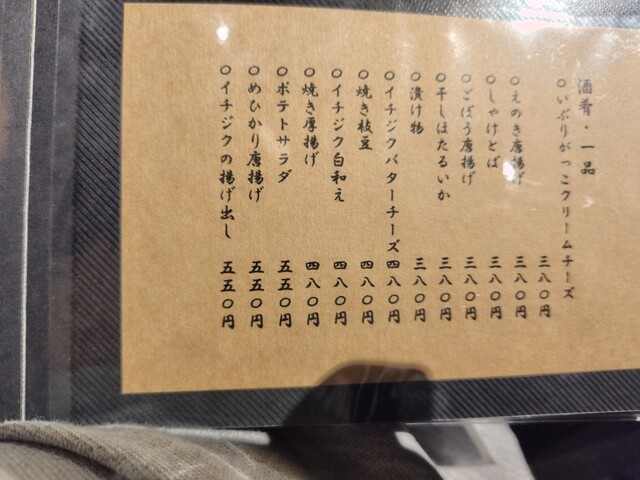 酒肴・一品
〇いぶりがっこクリームチーズ 三八〇円
〇えのき唐揚げ 三八〇円
〇しゃけとば 三八〇円
〇ごぼう唐揚げ 三八〇円
〇干しほたるいか 三八〇円
〇漬け物 三八〇円
〇イチジクバターチーズ 四八〇円
〇焼き枝豆 四八〇円
〇イチジク白和え 四八〇円
〇焼き厚揚げ 四八〇円
〇ポテトサラダ 五五〇円
〇めひかり唐揚げ 五五〇円
〇イチジクの揚げ出し 五五〇円